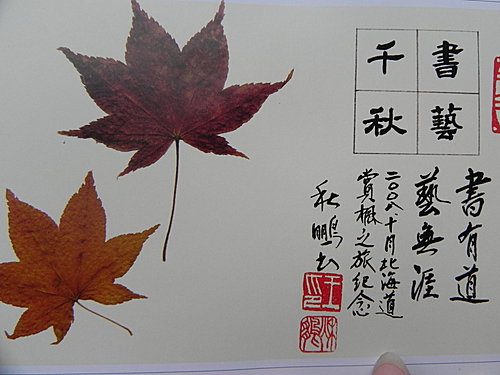 書藝
千秋
書有道
藝無涯
二〇〇八十月北海道
賞楓之旅紀念
秋鵬